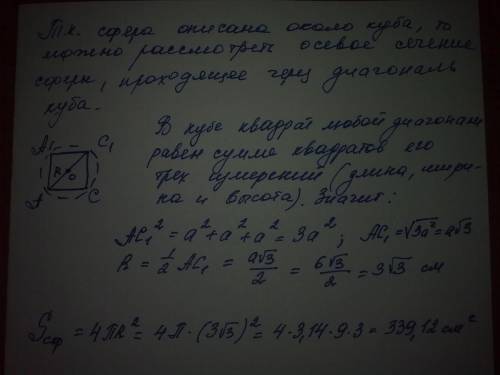 Т.к. сфера описана около куба, то
можно рассмотреть осевое сечение
сферы, проходящее через диагональ
куба.
A₁ C₁
R O
A C
В кубе квадрат любой диагонали
равен сумме квадратов его
трех измерений (длина, шири-
на и высота). Значит:
AC₁² = a² + a² + a² = 3a² ; AC₁ = √3a² = a√3
R = 1/2 AC₁ = a√3/2 = 6√3/2 = 3√3 см
Sсф = 4ПR² = 4П · (3√3)² = 4·3,14·9·3 = 339,12 см²